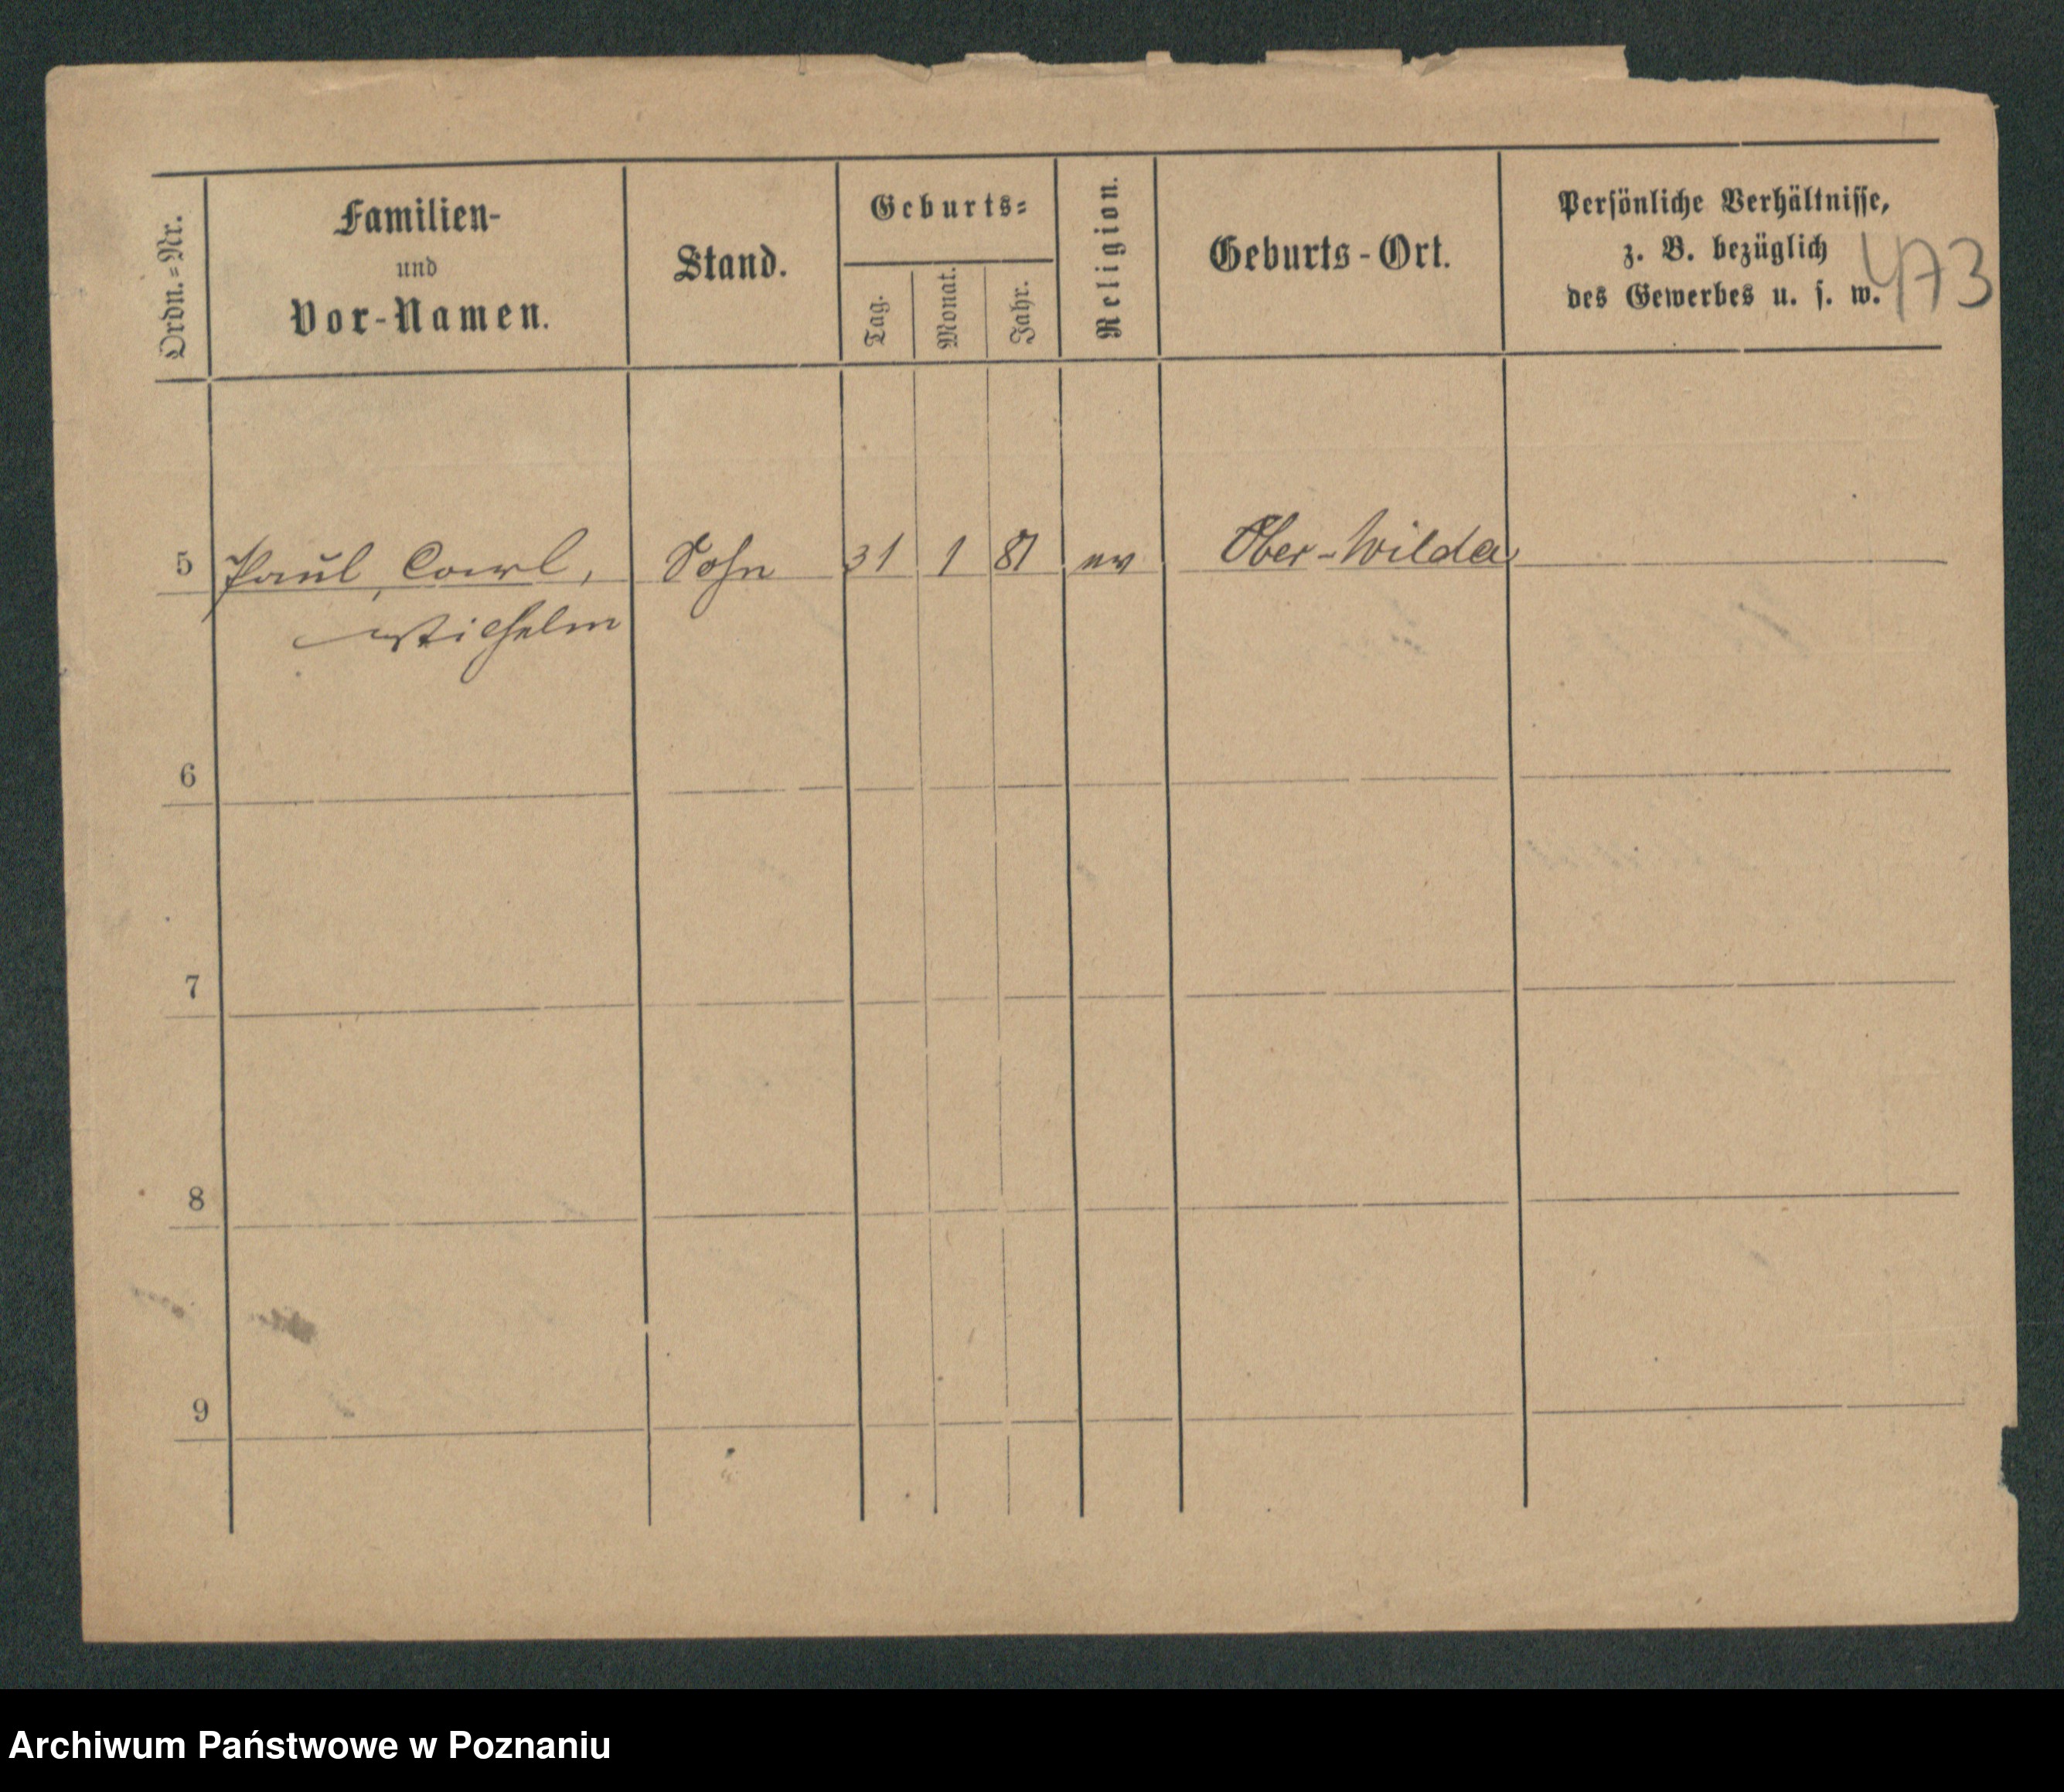 Ordn.=Nr.
Familien-
und
Vor-Namen.
Stand.
Geburts=
Tag.
Monat.
Jahr.
Religion.
Geburts-Ort.
Persönliche Verhältnisse,
z. B. bezüglich
des Gewerbes u. s. w.
473
5 Paul, Carl, Sohn 31 1 81 ev Ober-Wilda
Wilhelm
6
7
8
9
Archiwum Państwowe w Poznaniu